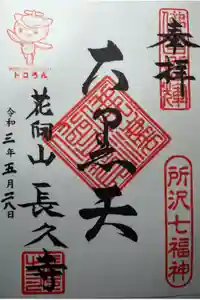 奉拝
所沢七福神
大黒天
トコろん
令和三年五月二八日
花向山 長久寺